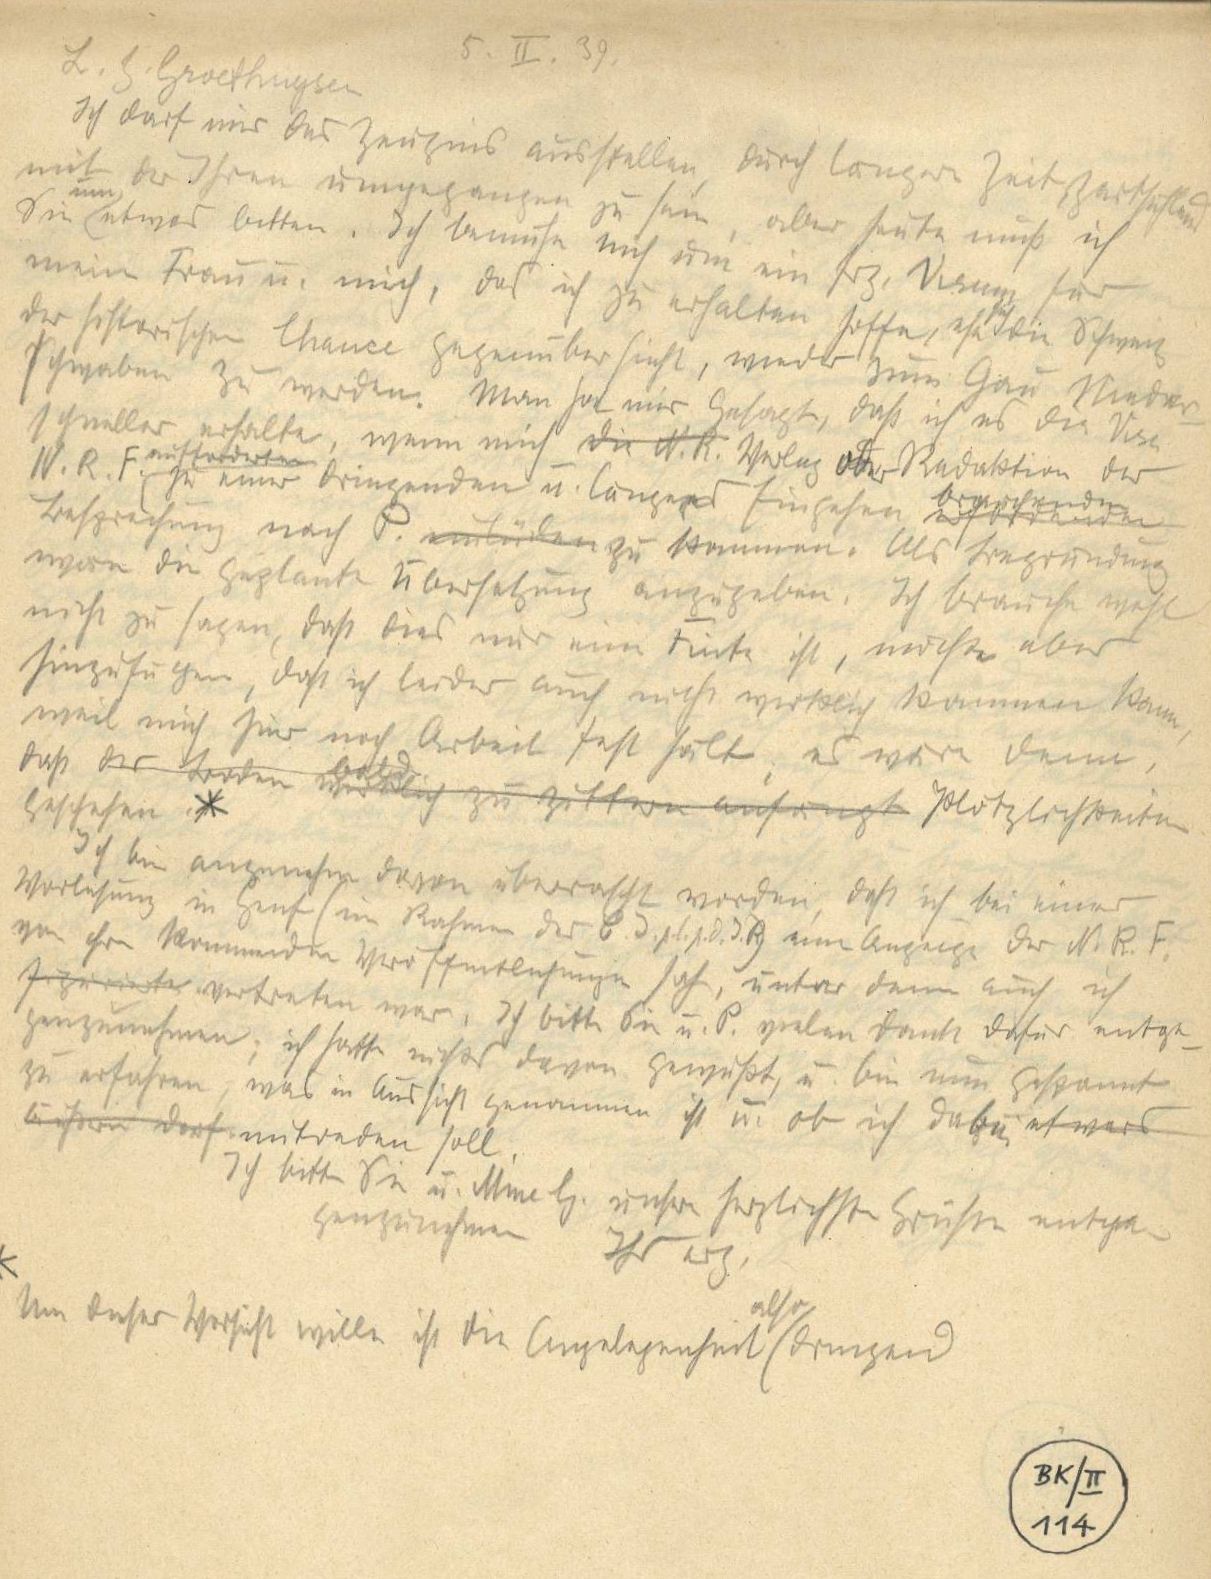 5. II. 39.
L. H. Groethuysen
Ich darf mir das Zeugnis ausstellen, durch längere Zeit zartfühlend
mit der Ihren umgegangen zu sein, aber heute muß ich
Sie um etwas bitten. Ich bemühe mich um ein frz. Visum für
meine Frau u. mich, das ich zu erhalten hoffe, ehe sich die Schweiz
der historischen Chance gegenüber sieht, wieder zum Gau Nieder-
schwaben zu werden. Man hat mir gesagt, daß ich es die Visa
schneller erhalte, wenn mich die N. R. Verlag oder Redaktion der
N. R. F. aufforderten zu einer dringenden u. längeres Eingehen brauchenden erfordernden
Besprechung nach P. einlüden zu kommen. Als Begründung
wäre die geplante Übersetzung anzugeben. Ich brauche wohl
nicht zu sagen, daß dies nur eine Finte ist, möchte aber
hinzufügen, daß ich leider auch nicht wirklich kommen kann,
weil mich hier noch Arbeit fest hält, es wäre denn,
daß der Boden wirklich bald zu zittern anfängt Plötzlichkeiten
geschehen. *
Ich bin angenehm davon überrascht worden, daß ich bei einer
Vorlesung in Genf (im Rahmen der eine Anzeige der N. R. F.
von ihren kommenden Veröffentlichungen sah, unter denen auch ich
figurierte vertreten war. Ich bitte Sie u. P. vielen Dank dafür entge-
genzunehmen; ich hatte nichts davon gewußt, u. bin nun gespannt
zu erfahren, was in Aussicht genommen ist u. ob ich dabei etwas
äußern darf mitreden soll.
Ich bitte Sie u. Mme G. unsere herzlichsten Grüße entge-
genzunehmen
Ihr erg.
*
Um dieser Vorsicht willen ist die Angelegenheit also dringend
BK/II
114